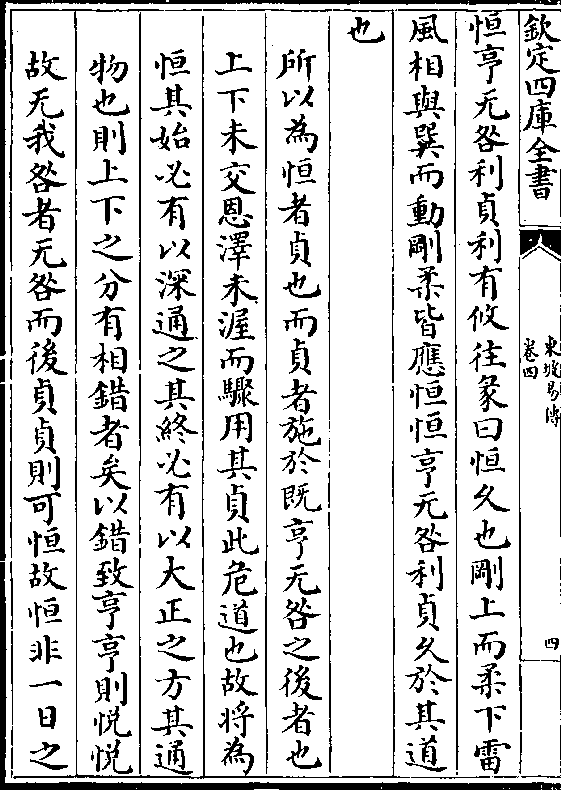 欽定四庫全書
東坡易傳
卷四
四
恒亨无咎利貞利有攸往彖曰恒久也剛上而柔下雷
風相與巽而動剛柔皆應恒恒亨无咎利貞久於其道
也
所以為恒者貞也而貞者施於既亨无咎之後者也
上下未交恩澤未渥而驟用其貞此危道也故将為
恒其始必有以深通之其終必有以大正之方其通
物也則上下之分有相錯者矣以錯致亨亨則悦悦
故无我咎者无咎而後貞貞則可恒故恒非一日之